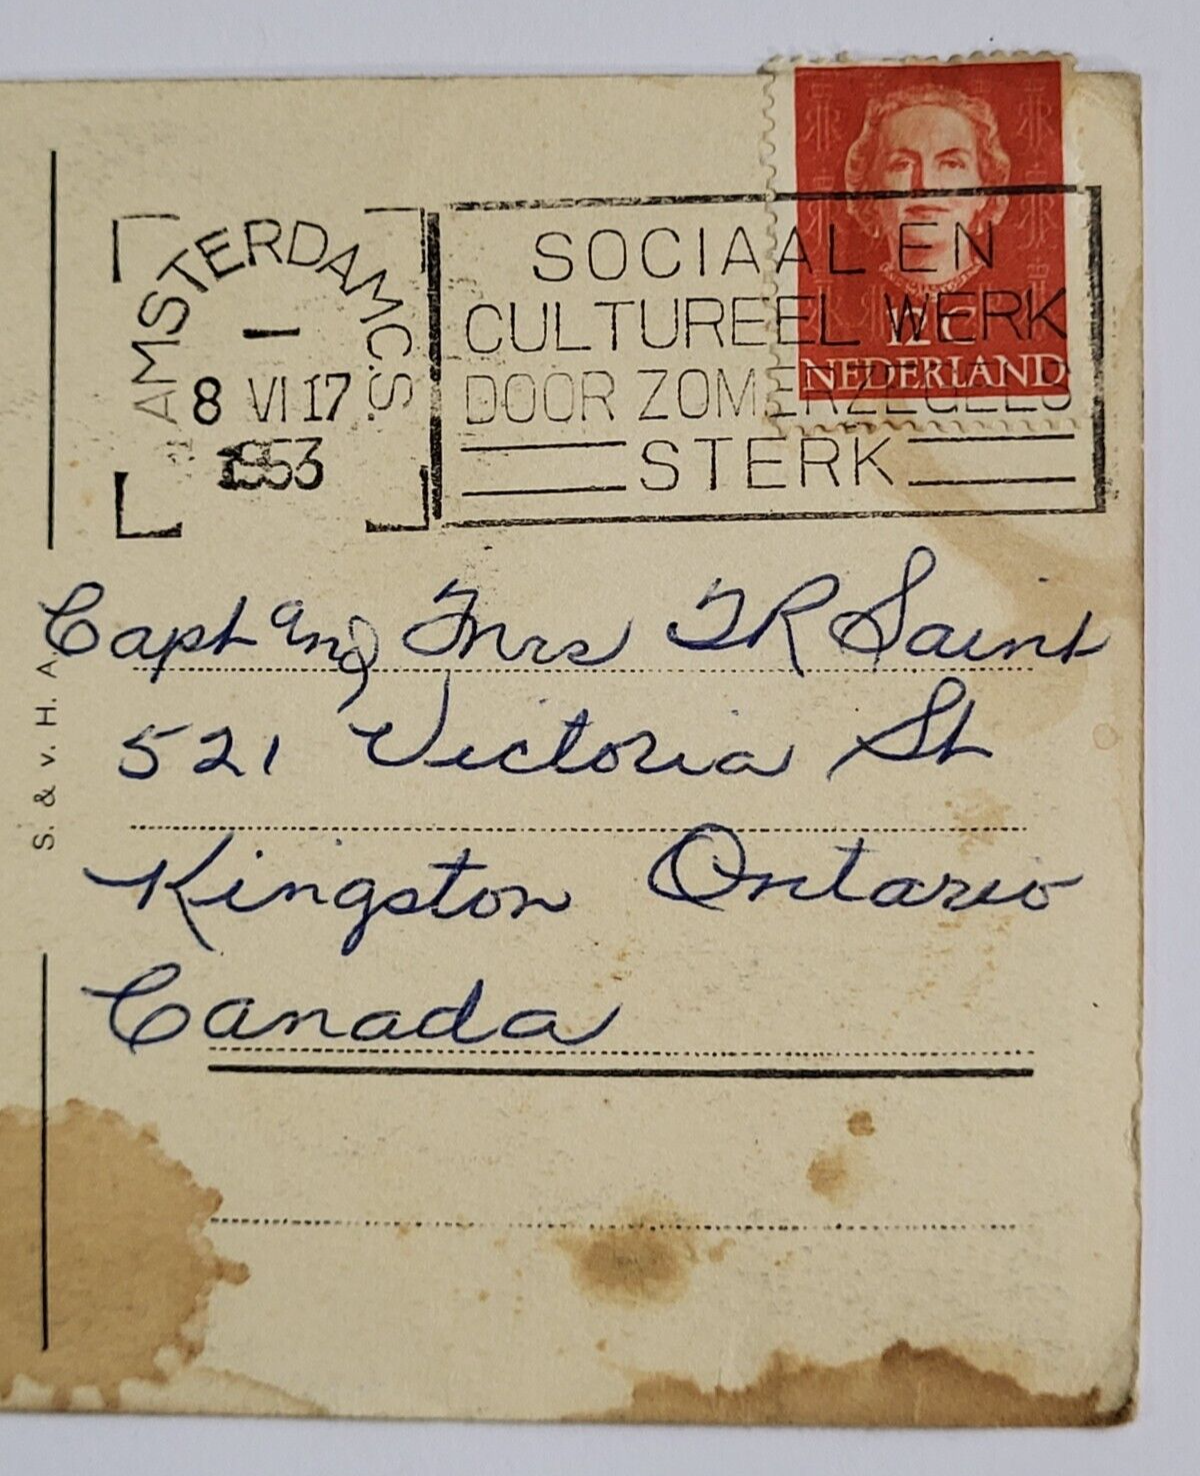 AMSTERDAM C.S.
1
8 VI 17
1953
SOCIAAL EN
CULTUREEL WERK
DOOR ZOMERZEGELS
STERK
12 c
NEDERLAND
Capt and Mrs TR Saint
521 Victoria St
Kingston Ontario
Canada
S. & v. H. A.